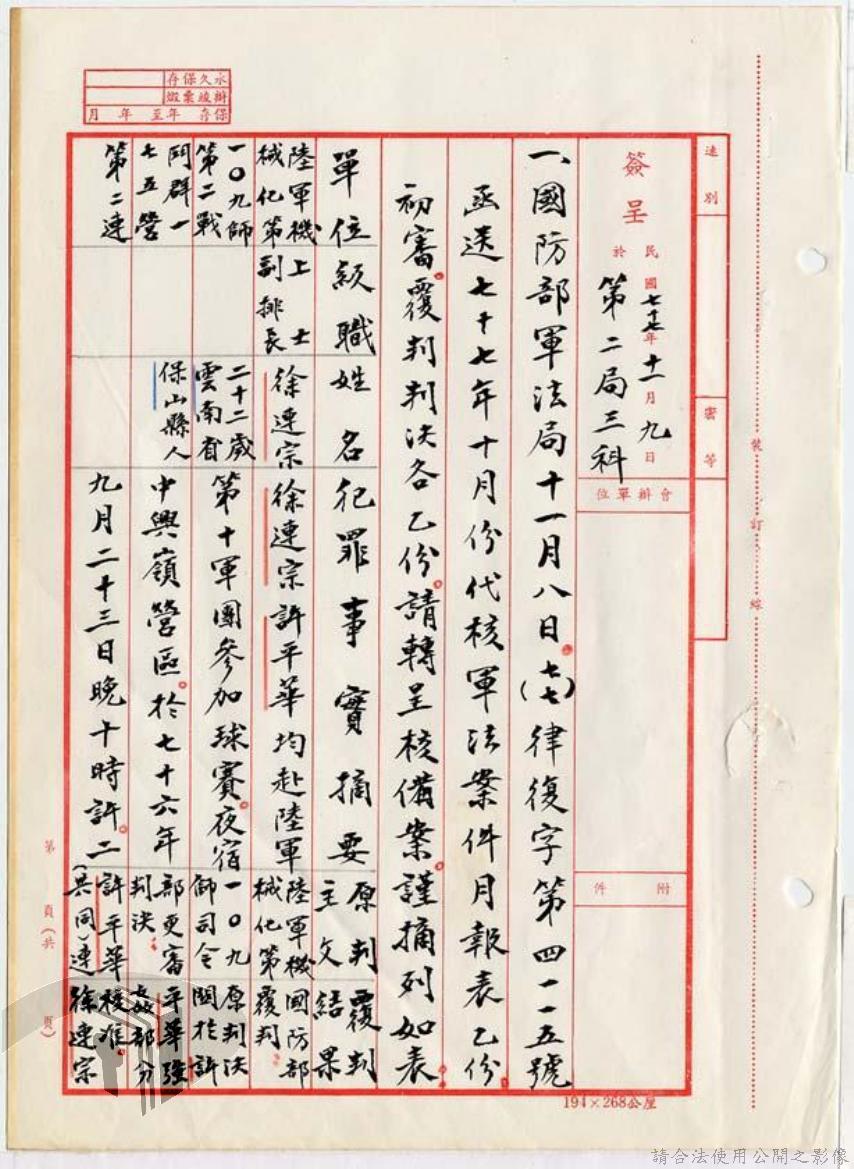 永久保存
辦竣彙燬
保存　年至　年　月
速別
密等
簽呈　於民國七十七年十一月九日
第二局三科
會辦單位
附件
一、國防部軍法局十一月八日。(七七)律復字第四一一五號
函送七十七年十月份代核軍法案件月報表乙份
初審。覆判判決各乙份。請轉呈核備案。謹摘列如表。
單位級職姓名犯罪事實摘要
原判主文
覆判結果
陸軍機械化第一〇九師第二戰鬥群一七五營第二連
上士副排長
徐連宗
二十二歲
雲南省
保山縣人
徐連宗許平華均赴陸軍
第十軍團參加球賽。夜宿
中興嶺營區。於七十六年
九月二十三日晚十時許。二
陸軍機
械化第
一〇九
師司令
部更審
判決：
許平華
(共同)連
國防部
覆判：
原判決
關於許
平華強
姦部分
核准。
徐連宗
裝訂線
第　頁(共　頁)
194×268公厘
請合法使用公開之影像